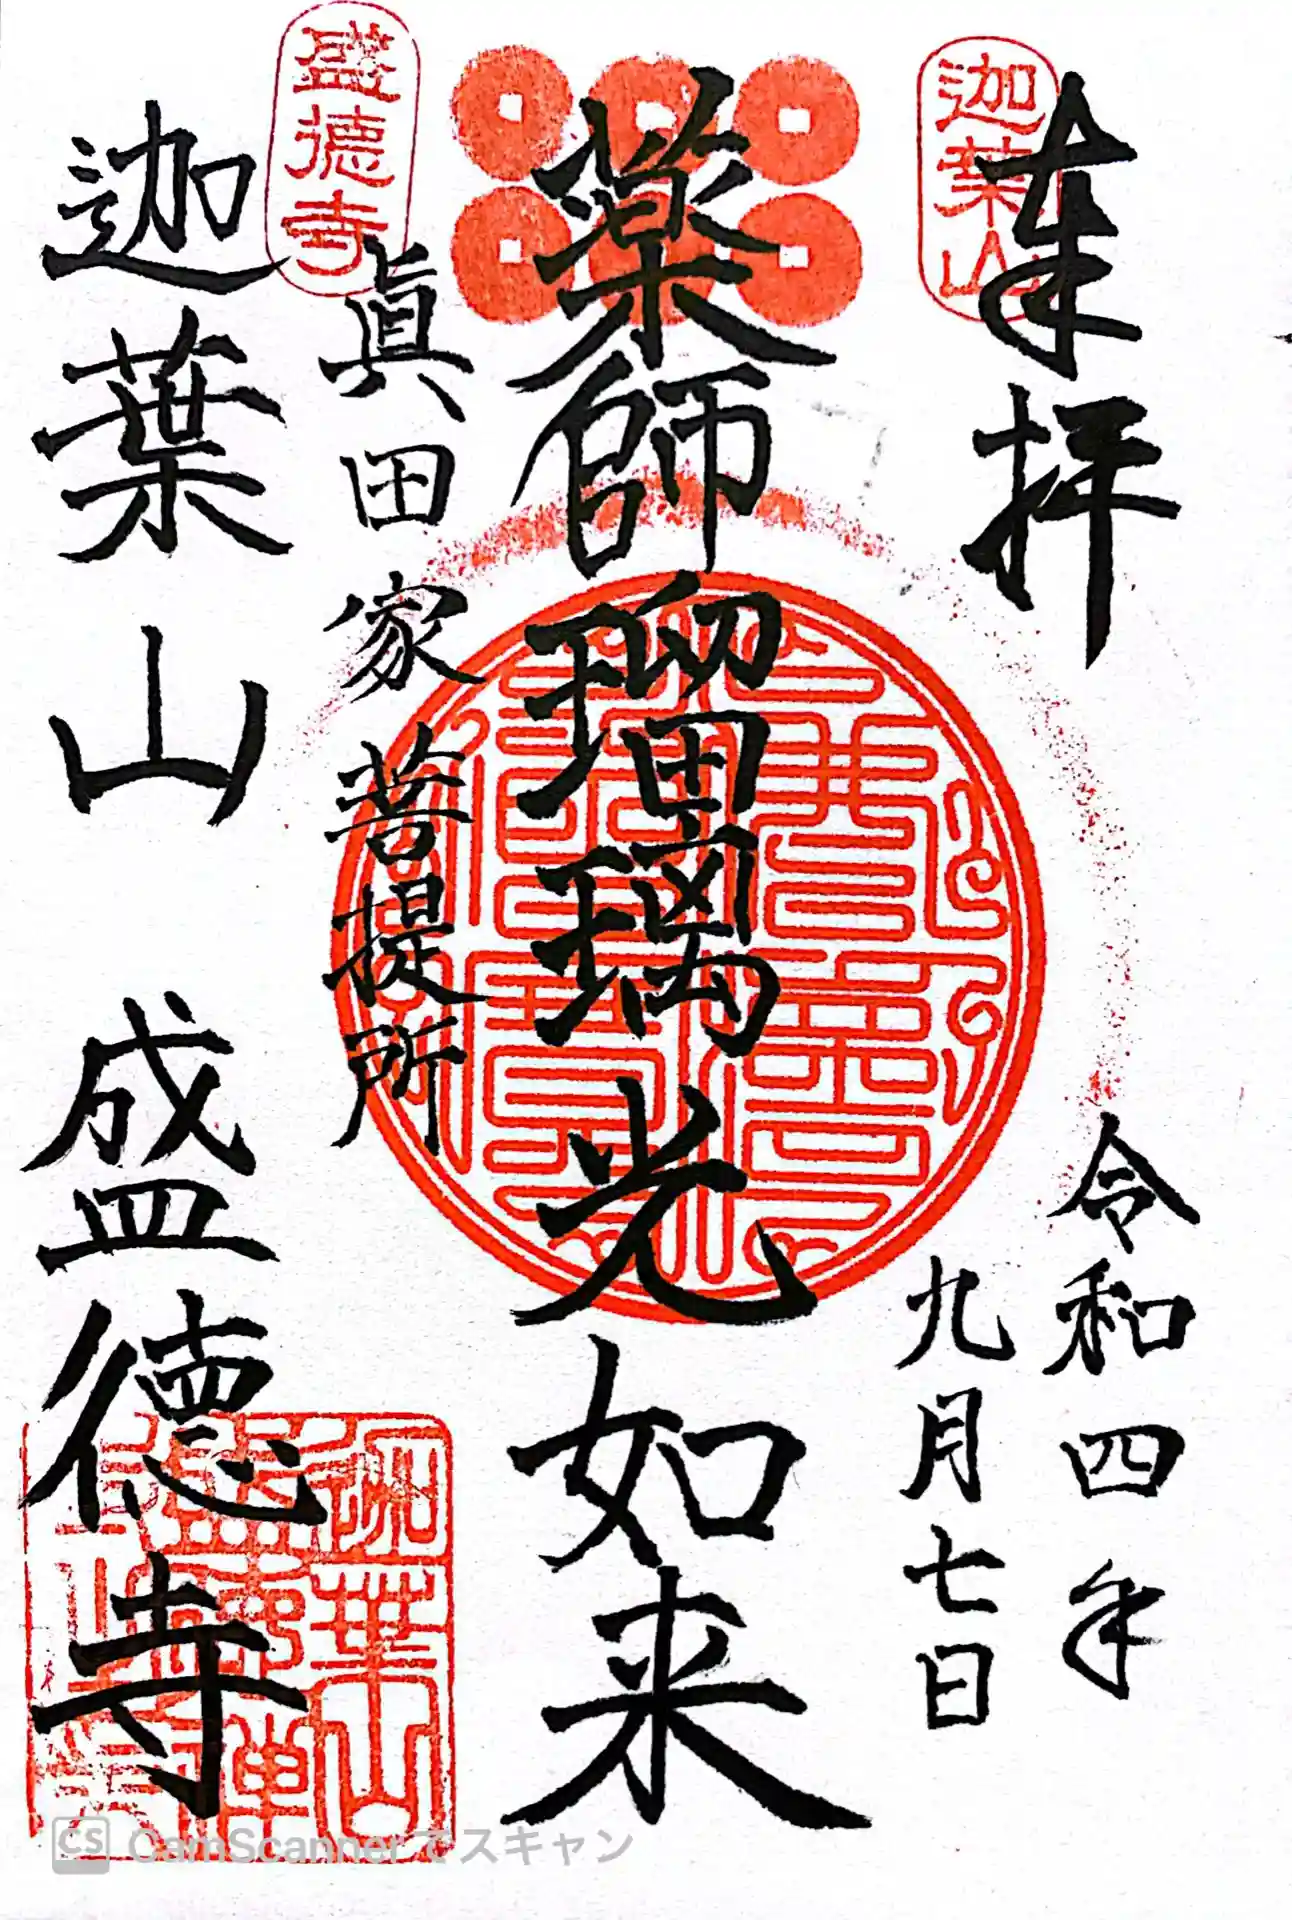 奉拝
迦葉山
令和四年
九月七日
薬師瑠璃光如来
眞田家菩提所
盛徳寺
迦葉山 盛徳寺
CS CamScannerでスキャン